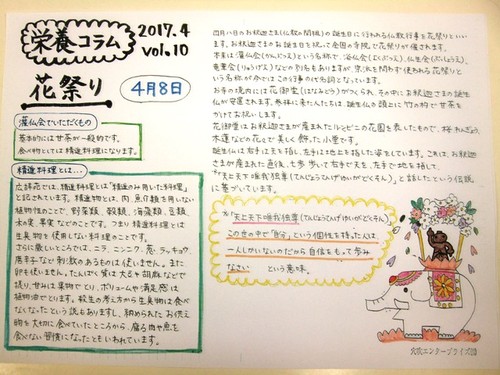 栄養コラム
2017.4
vol.10
花祭り
4月8日
灌仏会でいただくもの
基本的には甘茶が一般的です。
食べ物としては精進料理になります。
精進料理とは…
広辞苑では、精進料理とは"精進のみ用いた料理"
と記されています。精進物とは、肉、魚介類を用いない
植物性のことで、野菜類、穀類、海藻類、豆類、
木の実、果実などのことです。つまり精進料理とは
生臭物を使用しない料理のことです。
さらに厳しいところでは、ニラ、ニンニク、葱、ラッキョウ、
唐辛子など刺激のあるものは使いません。また
卵も使いません。たんぱく質は大豆や胡麻などで
摂り、甘みは果物でとり、ボリュームや満足感は
植物油でだします。殺生の考え方から生臭物は食べ
なくなったという説もありますし、納められたお供え
物を大切に食べていたところから、腐る肉や魚を
食べない習慣になったともいわれています。
四月八日のお釈迦さま(仏教の開祖)の誕生日に行われる仏教行事を花祭りといい
ます。お釈迦さまのお誕生日を祝って全国の寺院で花祭りが催されます。
本来は灌仏会(かんぶつえ)という名称で、浴仏会(よくぶつえ)、仏生会(ぶっしょうえ)、
竜華会(りゅうげえ)などの別名もありますが、宗派を問わず使われる花祭りと
いう名称が今ではこの行事の代名詞となっています。
お寺の境内には花御堂(はなみどう)がつくられ、その中にお釈迦さまの誕生
仏が安置されます。参拝に来た人たちは、誕生仏の頭上に竹の杓で甘茶を
かけてお祝いします。
花御堂はお釈迦さまが産まれたルンビニの花園を表したもので、桜、れんぎょう、
木蓮などの花々で美しく飾った小堂です。
誕生仏は右手は天を指し、左手は地上を指した姿をしています。これは、お釈迦
さまが産まれた直後、七歩歩いて右手で天を、左手で地を指して、
"天上天下唯我独尊(てんじょうてんげゆいがどくそん)"と話したという伝説
に基づいています。
*"天上天下唯我独尊(てんじょうてんげゆいがどくそん)
この世の中で「自分」という個性を持った人は、
一人しかいないのだから自信をもって歩み
なさい という意味。
穴吹エンタープライズ㈱